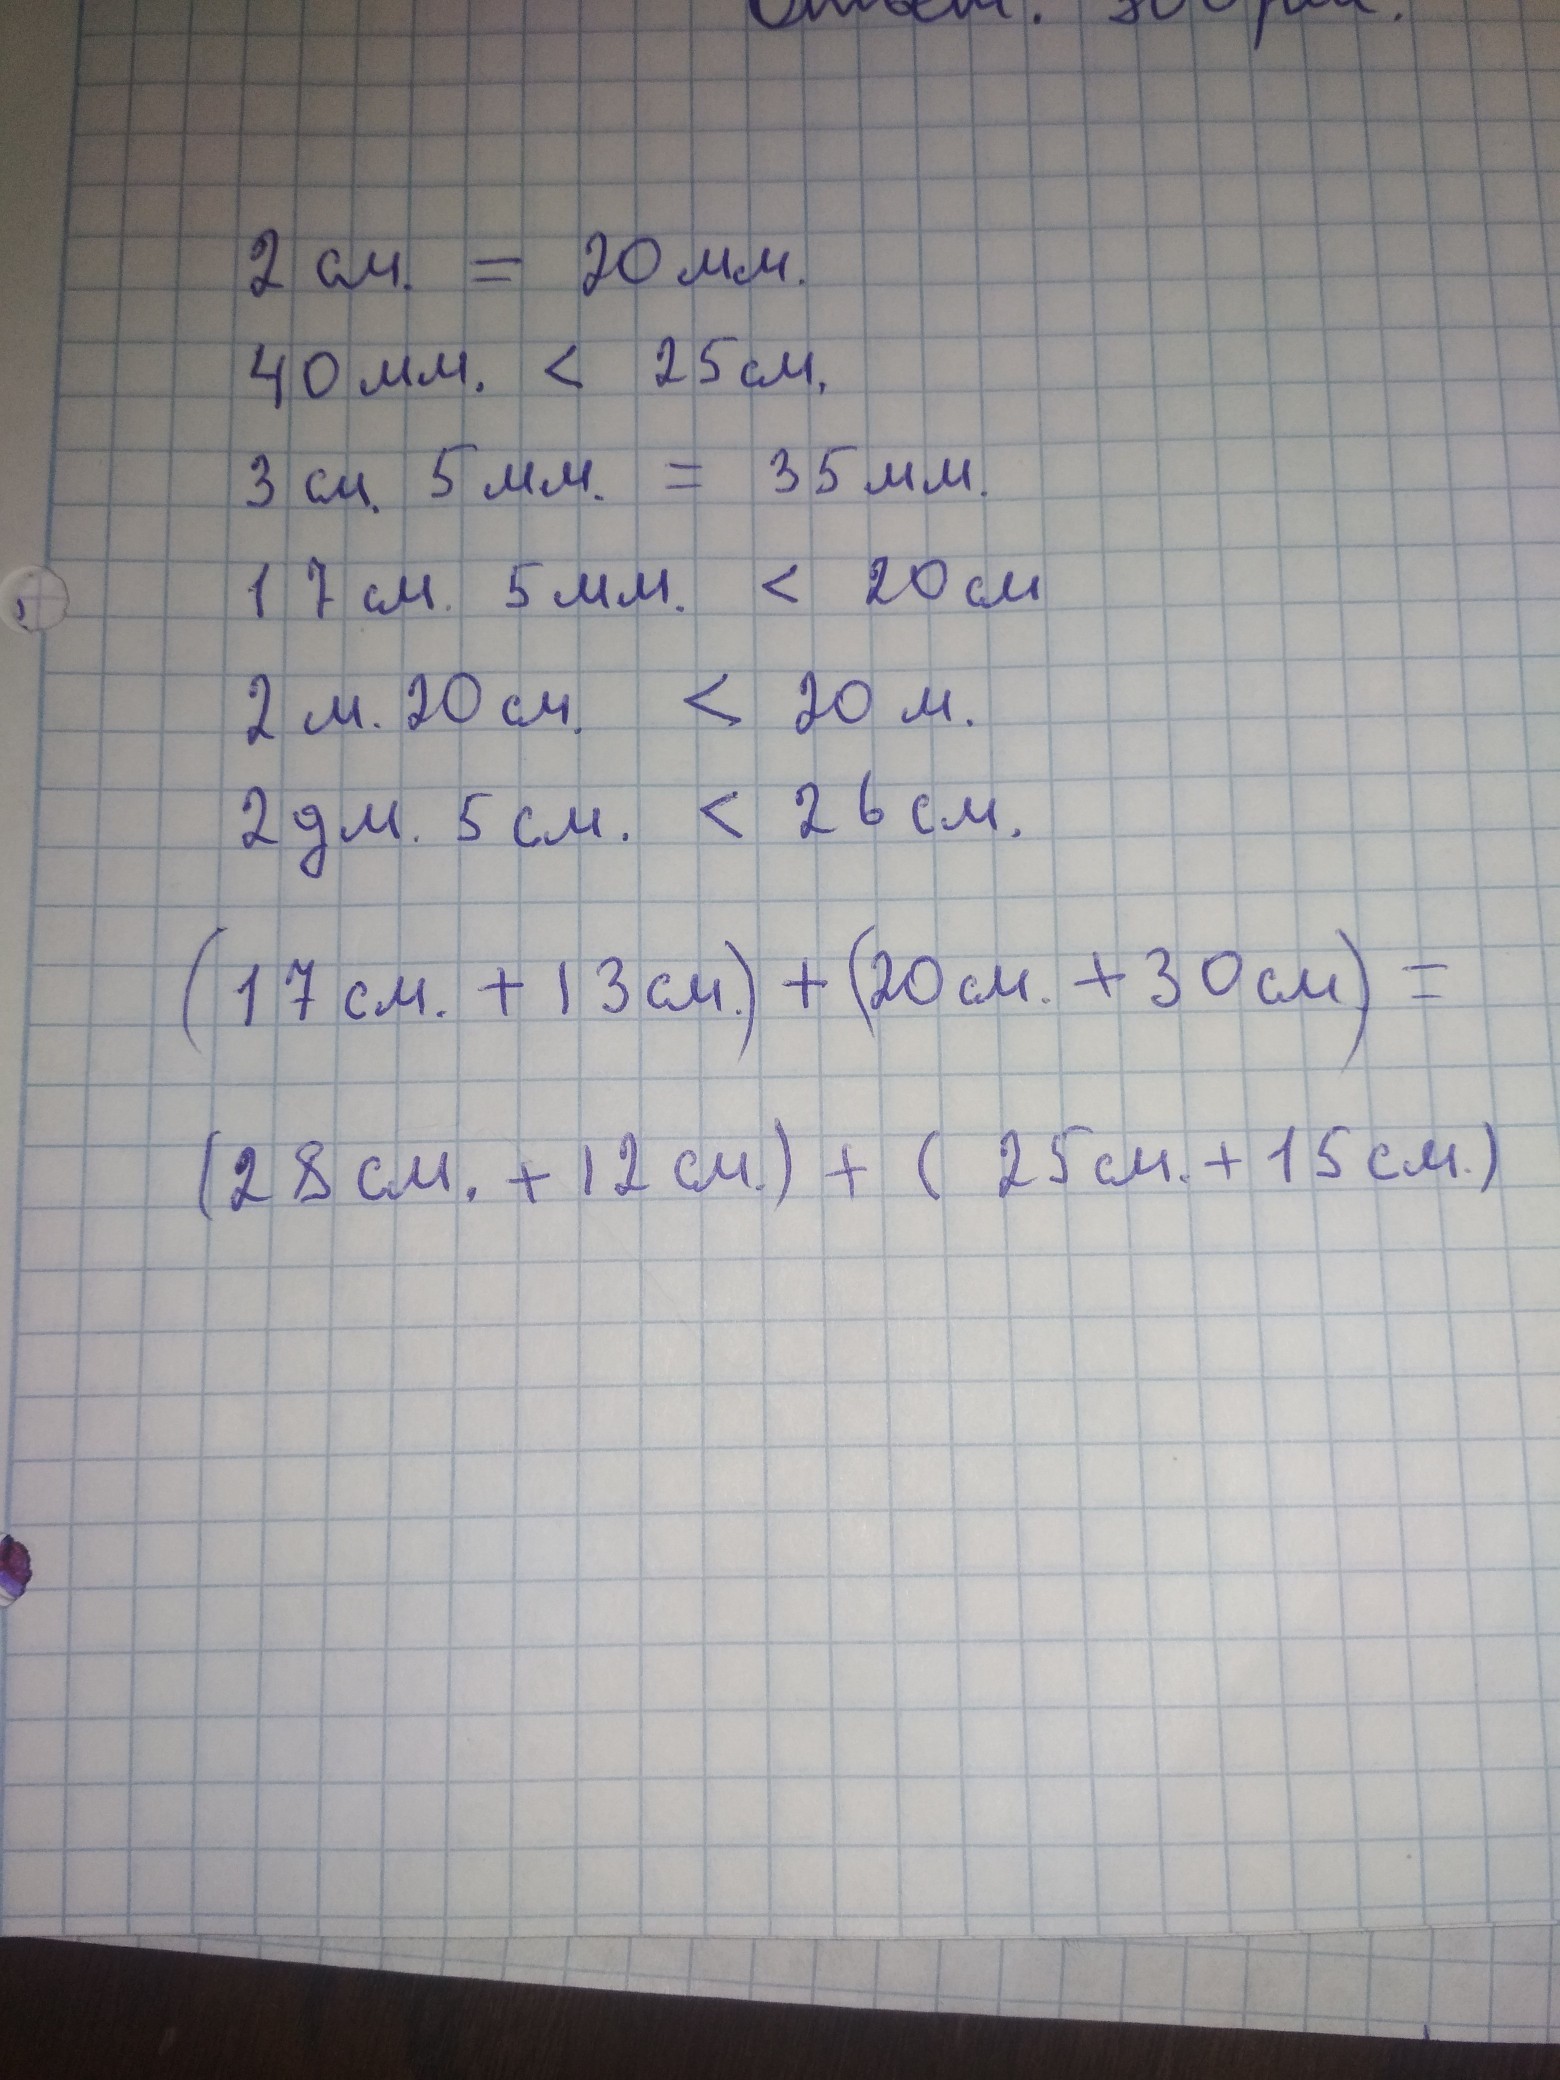 Ответ:
2 см. = 20 мм.
40 мм. < 25 см.
3 см. 5 мм. = 35 мм.
17 см. 5 мм. < 20 см
2 м. 20 см. < 20 м.
2 дм. 5 см. < 26 см.
(17 см. + 13 см.) + (20 см. + 30 см) =
(28 см. + 12 см.) + ( 25 см. + 15 см.)